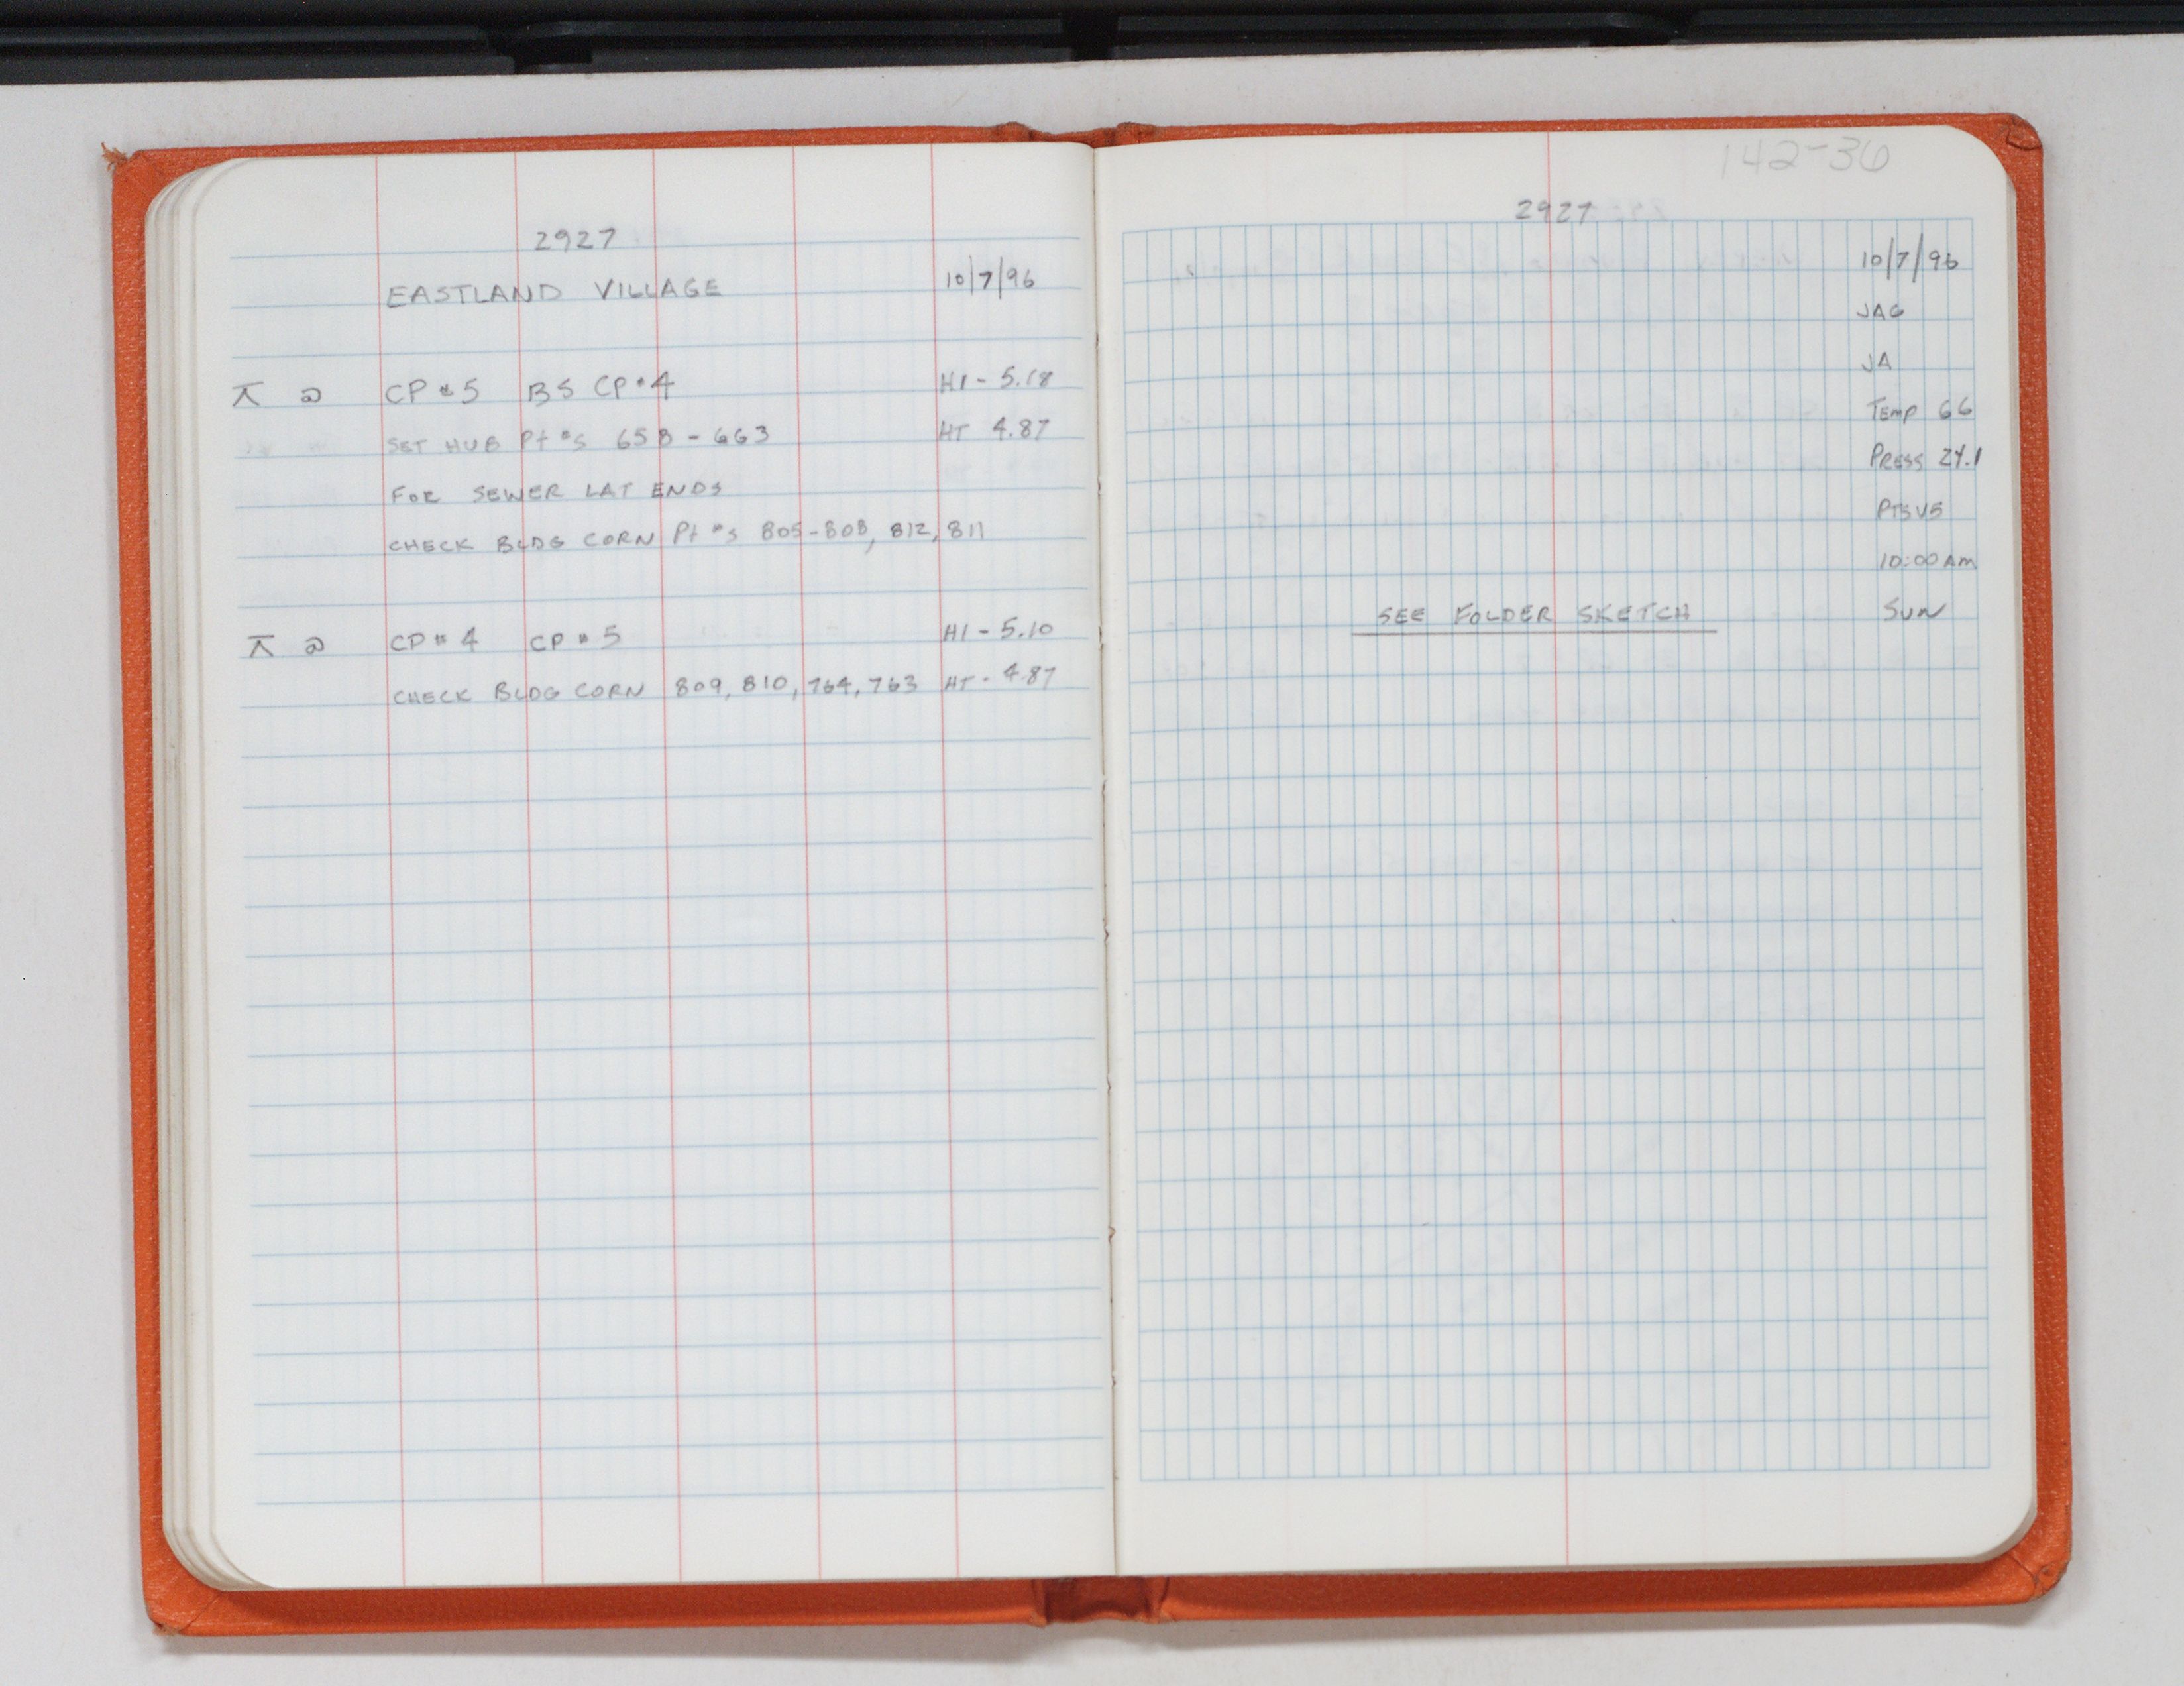 2927
EASTLAND VILLAGE 10/7/96
⊼ @ CP #5 BS CP #4 HI - 5.18
SET HUB Pt #s 658 - 663 HT 4.87
FOR SEWER LAT ENDS
CHECK BLDG CORN Pt #s 805-808, 812, 811
⊼ @ CP # 4 CP # 5 HI - 5.10
CHECK BLDG CORN 809, 810, 764, 763 HT - 4.87
142-36
2927
10/7/96
JAG
JA
TEMP 66
PRESS
10:00 AM
SEE FOLDER SKETCH SUN